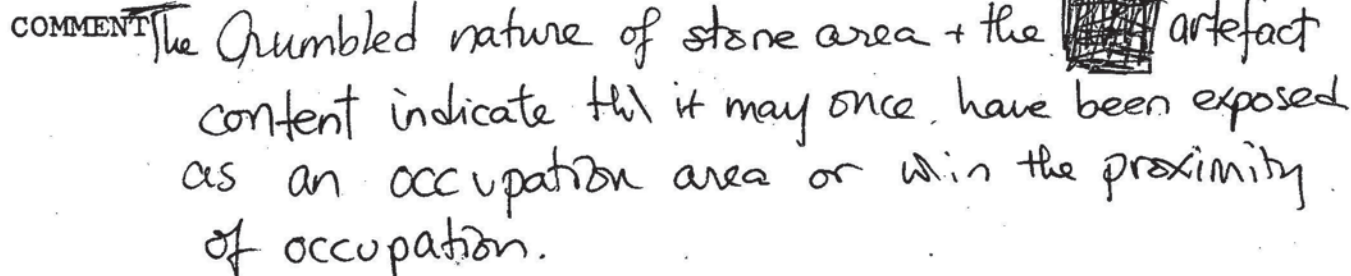 COMMENT The Crumbled nature of stone area + the artefact
content indicate that it may once have been exposed
as an occupation area or w/in the proximity
of occupation.